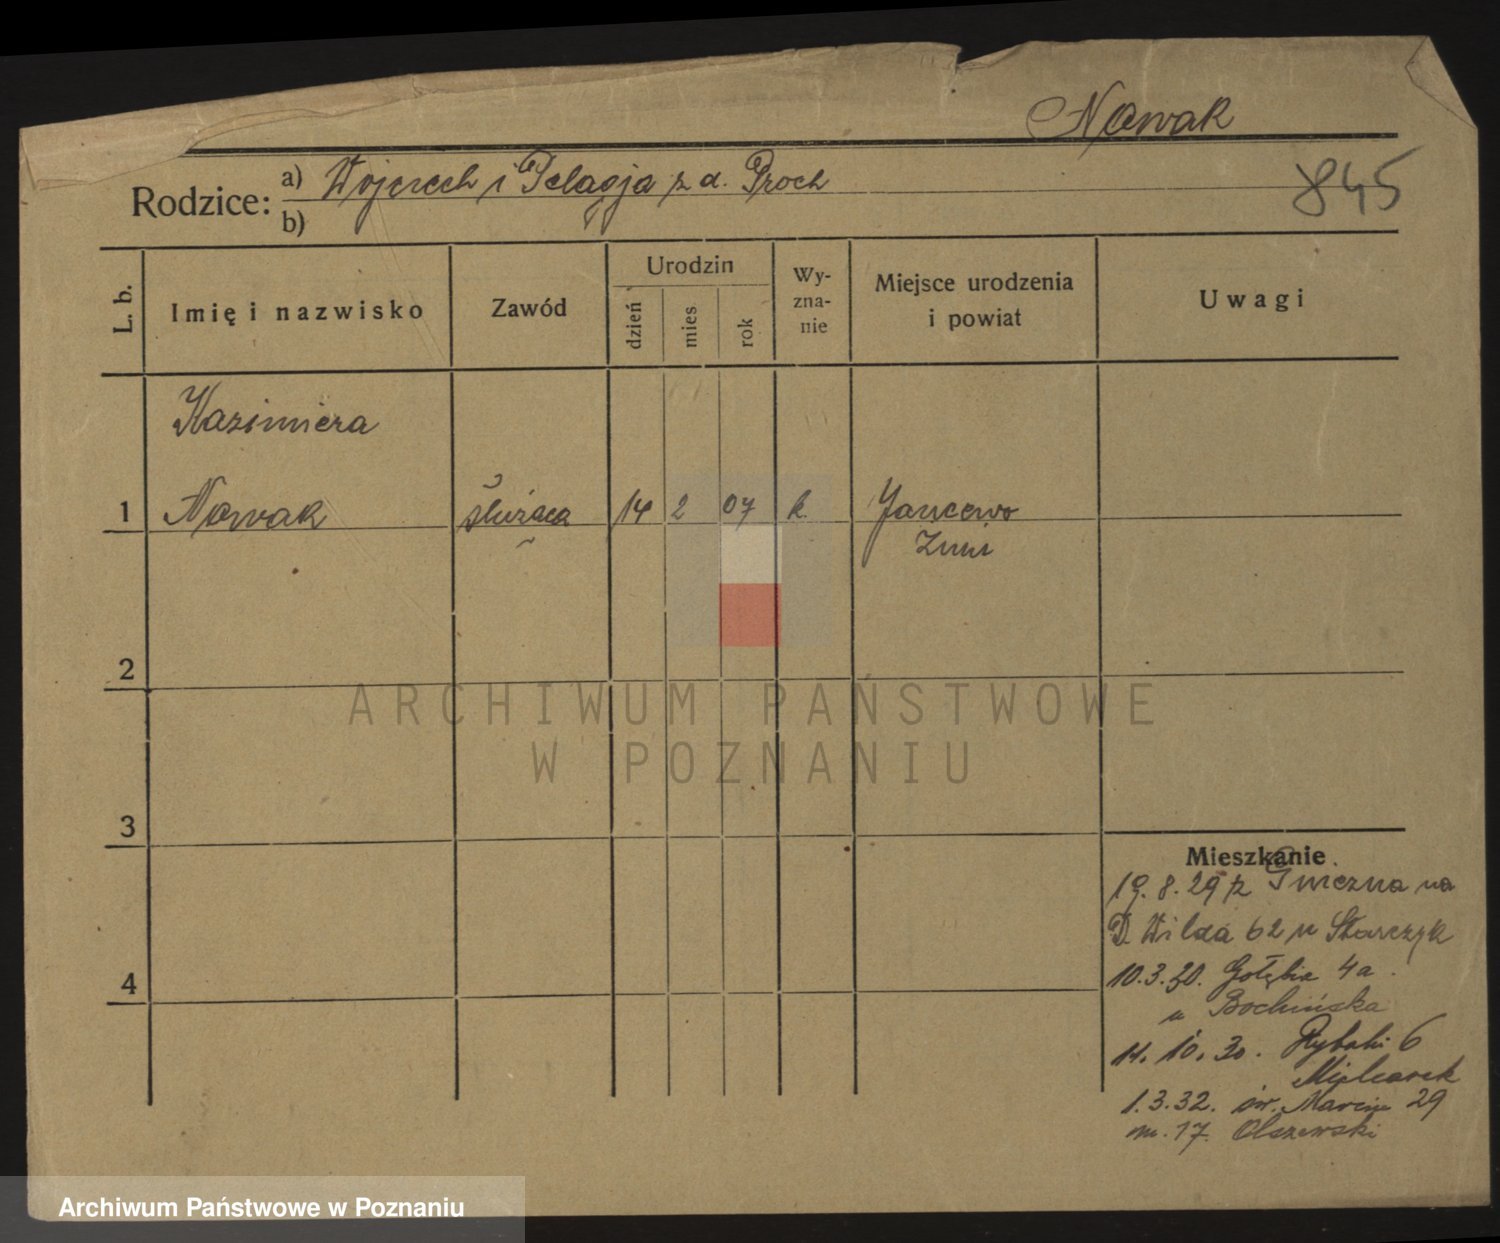 Nowak
845
Rodzice: a) Wojciech i Pelagja z d. Proch
b)
L. b. Imię i nazwisko Zawód Urodzin dzień mies rok Wy-zna-nie Miejsce urodzenia i powiat Uwagi
Kazimiera
1 Nowak służąca 14 2 07 k Jancewo
Żnin
2
ARCHIWUM PAŃSTWOWE
W POZNANIU
3
Mieszkanie
19.8.29 z Gniezna na
D. Wilda 62 u Starczyk
10.3.30. Gołębia 4a.
u Bochińska
14.10.30. Rybaki 6
Mielcarek
1.3.32. św. Marcin 29
m. 17. Olszewski
4
Archiwum Państwowe w Poznaniu